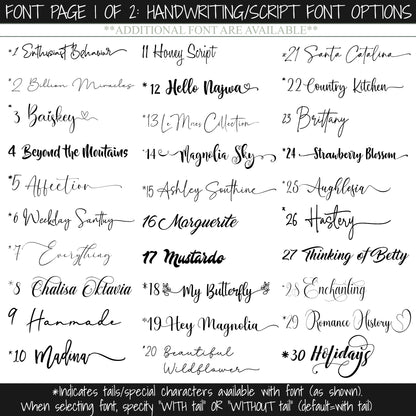 FONT PAGE 1 OF 2: HANDWRITING/SCRIPT FONT OPTIONS
**ADDITIONAL FONT ARE AVAILABLE**
*1 Enthusiast Behaviour
*2 Billion Miracles
*3 Baiskey
4 Beyond the Mountains
*5 Affection
*6 Weekday Santhy
*7 Everything
*8 Chalisa Oktavia
9 Hanmade
*10 Madina
11 Honey Script
*12 Hello Najwa
*13 La Mines Collection
*14 Magnolia Sky
*15 Ashley Southine
16 Marguerite
17 Mustardo
*18 My Butterfly
*19 Hey Magnolia
*20 Beautiful
Wildflower
*21 Santa Catalina
*22 Country Kitchen
23 Brittany
*24 Strawberry Blossom
*25 Aughlesia
*26 Hastery
27 Thinking of Betty
*28 Enchanting
*29 Romance History
*30 Holidays
*Indicates tails/special characters available with font (as shown).
When selecting font, specify "WITH tail" OR "WITHOUT tail" (default=with tail)